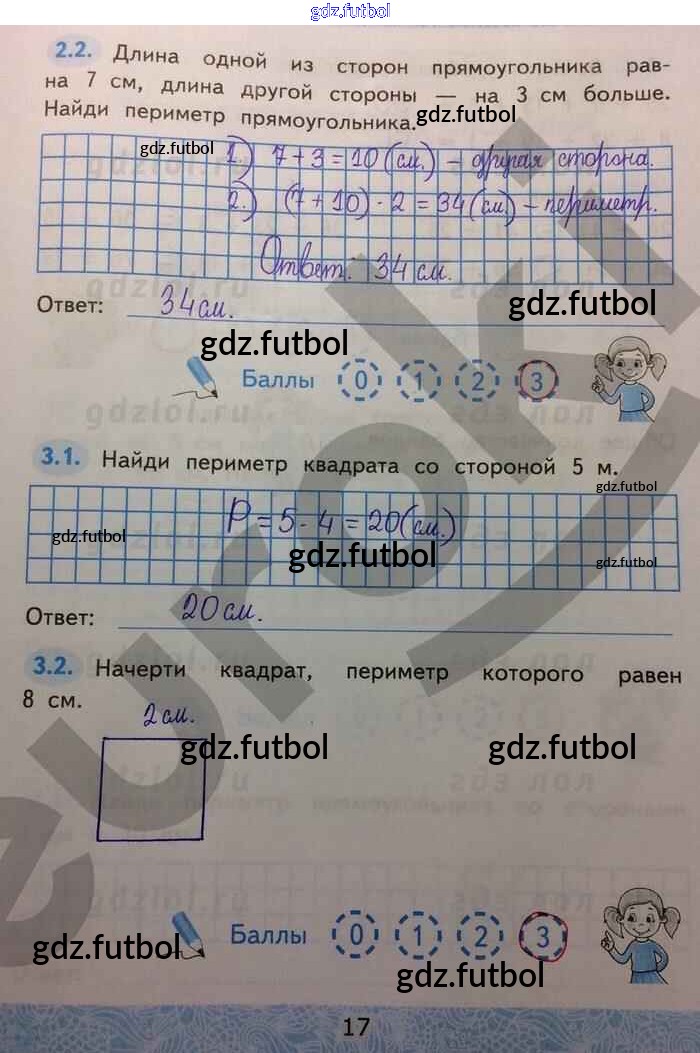 gdz.futbol
2.2. Длина одной из сторон прямоугольника рав-
на 7 см, длина другой стороны — на 3 см больше.
Найди периметр прямоугольника.
gdz.futbol
gdz.futbol
1.) 7 + 3 = 10 (см.) – другая сторона.
2.) (7 + 10) · 2 = 34 (см.) – периметр.
Ответ: 34 см.
Ответ: 34 см.
gdz.futbol
gdz.futbol
Баллы 0 1 2 3
3.1. Найди периметр квадрата со стороной 5 м.
gdz.futbol
P = 5 · 4 = 20 (см.)
gdz.futbol
gdz.futbol
gdz.futbol
Ответ: 20 см.
3.2. Начерти квадрат, периметр которого равен
8 см.
2 см.
gdz.futbol gdz.futbol
Баллы 0 1 2 3
gdz.futbol
gdz.futbol
17